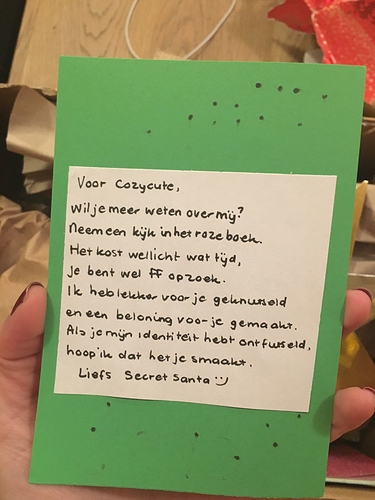 Voor Cozycute,
Wil je meer weten over mij?
Neem een kijk in het roze boek.
Het kost wellicht wat tijd,
je bent wel ff op zoek.
Ik heb lekker voor je geknutseld
en een beloning voor je gemaakt.
Als je mijn identiteit hebt ontfutseld,
hoop ik dat het je smaakt.
Liefs Secret Santa :)